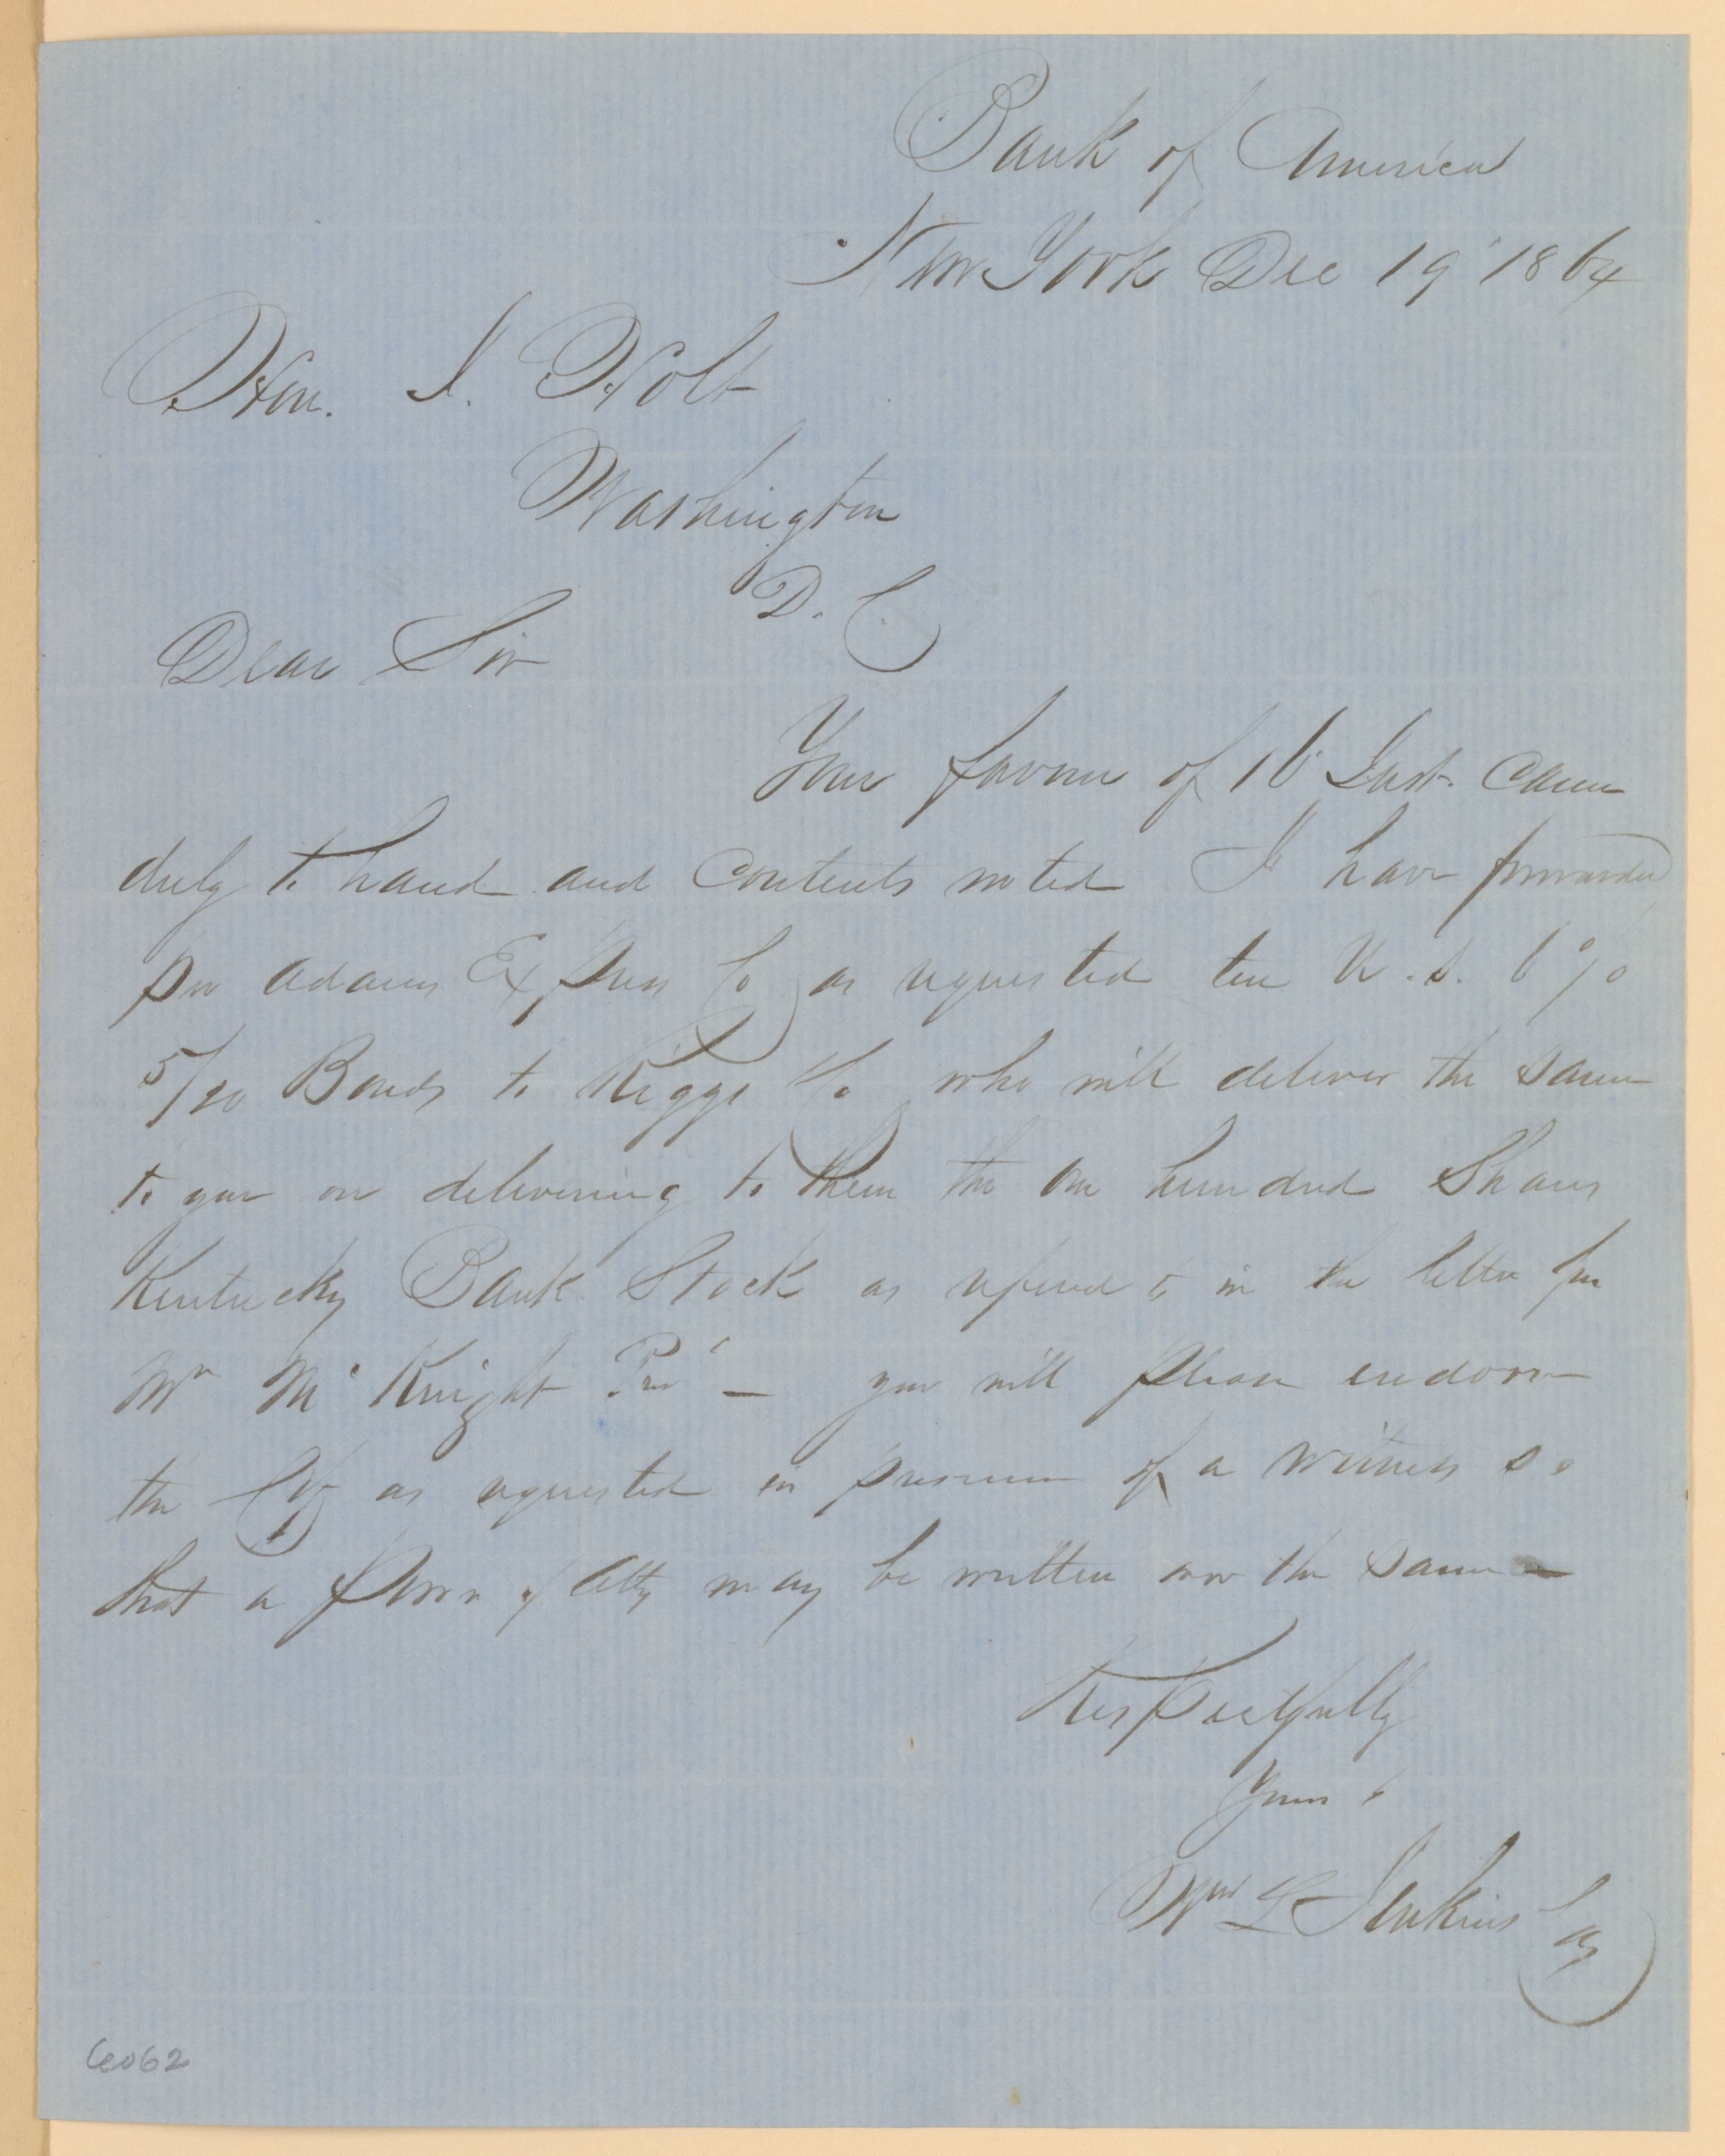 Bank of America
New York Dec 19 1864
Hon. J. Holt
Washington
D. C.
Dear Sir
Your favour of 16 Inst. came
duly to hand and contents noted I have forwarded
per Adams Express Co as requested ten U. S. 6 %
5/20 Bonds to Riggs & Co who will deliver the same
to you on delivering to them the one hundred Shares
Kentucky Bank Stock as referred to in the letter from
Mr McKnight Prst — you will please endorse
the Ctf as requested in presence of a witness so
that a Power of Atty may be written over the same —
Respectfully
Yours
Wm L Jenkins Cas
6062